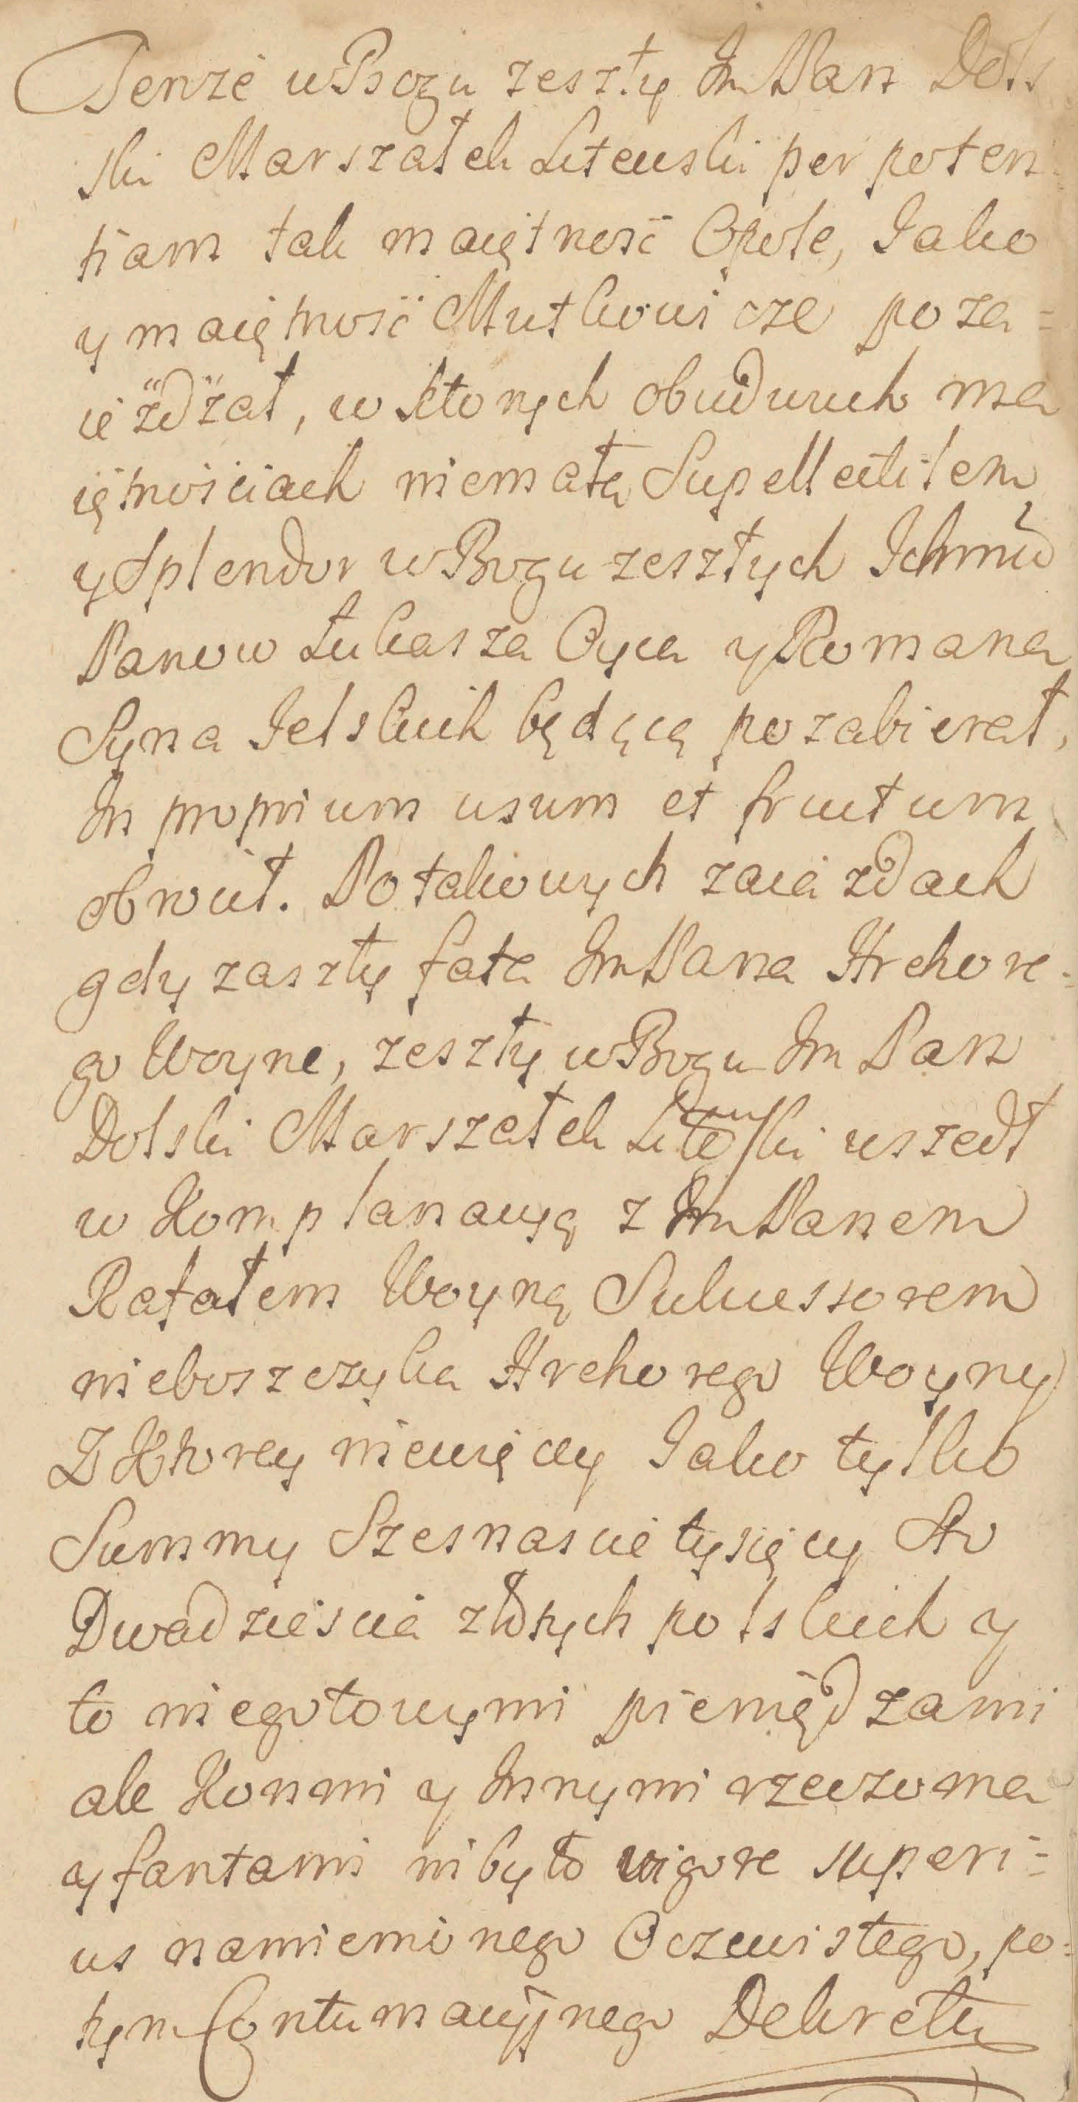 Tenże w Bogu zeszły Jm Pan Dols
ski Marszałek Litewski per poten
tiam tak maiętność Opole, Jako
y maiętność Mutkowicze poza=
ieżdżał, w ktorych obudwuch ma
iętnościach niemałą Supellectilem
y Splendor w Bogu zeszłych Ichmċ
Panow Łukasza Oyca y Romana
Syna Jelskich będącą pozabierał,
In proprium usum et fructum
obrocił. Po takowych zaiazdach
gdy zaszły fata Jm Pana Hrehore=
go Woyne, zeszły w Bogu Jm Pan
Dolski Marszałek Litewski wszedł
w Komplanacyą z Jm Panem
Rafałem Woyną Sukcessorem
nieboszczyka Hrehorego Woyny
Z Ktorey niewięcey Jako tylko
Summy Szesnascie tysięcy Sto
Dwadziescia złotych polskich y
to niegotowymi pieniędzami
ale Konmi y Innymi rzeczoma
y fantami niby to vigore superi=
us namienionego Oczewistego, po=
tym Contumacyjnego Dekretu